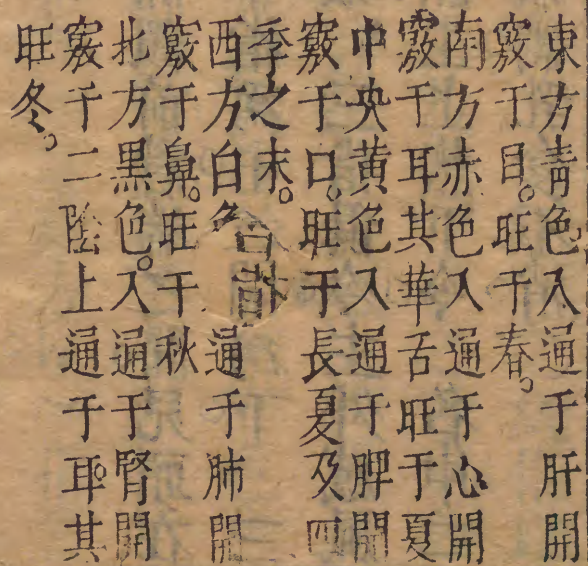 東方青色入通于肝開
竅于目。旺于春。
南方赤色入通于心開
竅于耳其華舌旺于夏
中央黄色入通于脾開
竅于口。旺于長夏及四
季之末。
西方白通于肺開
竅于鼻。旺于秋
北方黒色。入通于腎開
竅于二陰上通于耳。其
旺冬。